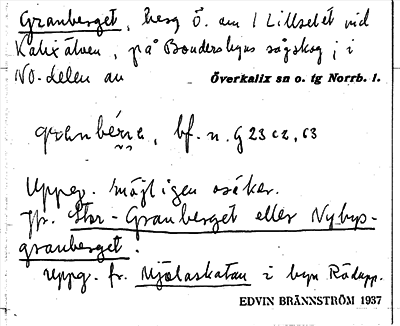 Granberget, berg Ö. om 1 Lillselet vid
Kalixälven, på Bondersbyns sågskog; i
NO-delen av Överkalix sn o. tg Norrb. l.
granbérje, bf. n. G 23 c2, c3
Uppg. möjligen osäker.
Jfr. Stor-Granberget eller Nybys-
granberget.
Uppg. fr. Mjölaskatan i byn Rödupp.
EDVIN BRÄNNSTRÖM 1937